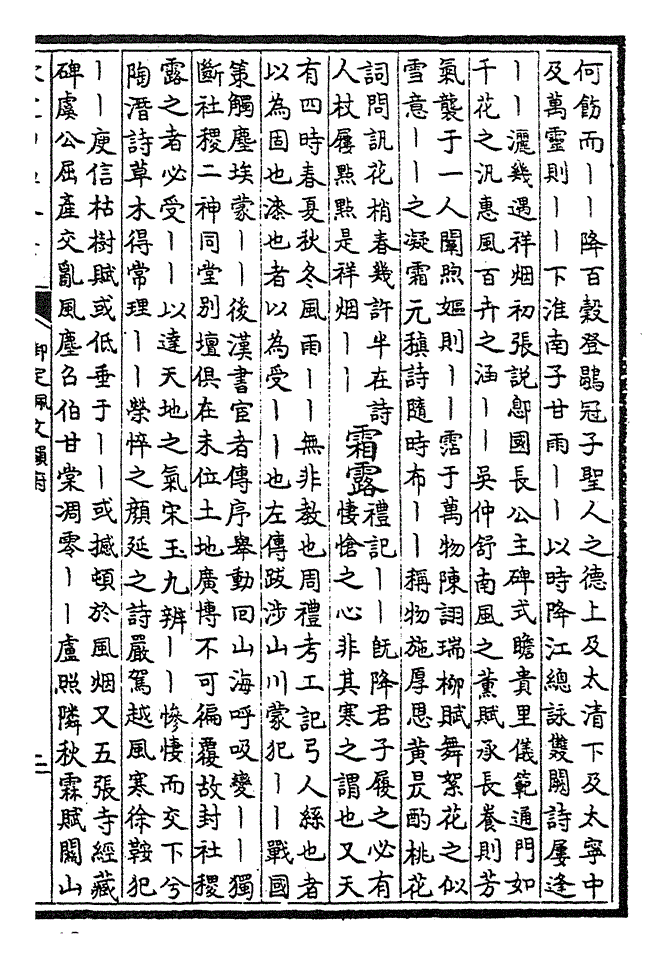 何飭而丨丨降百穀登鶡冠子聖人之德上及太清下及太寧中
及萬靈則丨丨下淮南子甘雨丨丨以時降江總詠雙闕詩屢逢
丨丨灑幾遇祥烟初張說鄎國長公主碑式瞻貴里儀範通門如
千花之汎惠風百卉之涵丨丨吳仲舒南風之薰賦承長養則芳
氣襲于一人闡煦嫗則丨丨霑于萬物陳詡瑞柳賦舞絮花之似
雪意丨丨之凝霜元稹詩隨時布丨丨稱物施厚恩黃炅酌桃花
詞問訊花梢春幾許半在詩
人杖屨點點是祥烟丨丨
霜露
禮記丨丨既降君子履之必有
悽愴之心非其寒之謂也又天
有四時春夏秋冬風雨丨丨無非教也周禮考工記弓人絲也者
以為固也漆也者以為受丨丨也左傳跋涉山川蒙犯丨丨戰國
策觸塵埃蒙丨丨後漢書宦者傳序舉動回山海呼吸變丨丨獨
斷社稷二神同堂別壇俱在未位土地廣博不可徧覆故封社稷
露之者必受丨丨以達天地之氣宋玉九辨丨丨慘悽而交下兮
陶潛詩草木得常理丨丨榮悴之顏延之詩嚴駕越風寒徐鞍犯
丨丨庾信枯樹賦或低垂于丨丨或撼頓於風烟又五張寺經藏
碑虞公屈產交亂風塵召伯甘棠凋零丨丨盧照隣秋霖賦關山
御定佩文韻府
二